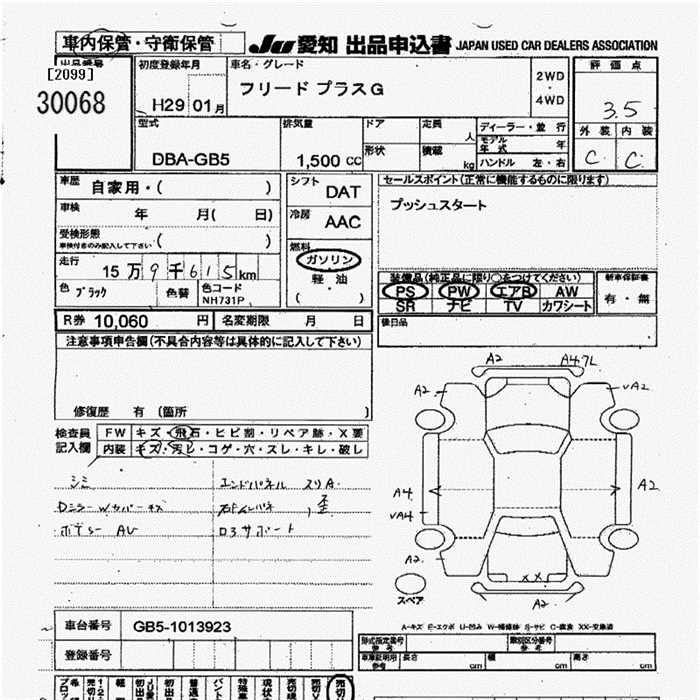 車内保管・守衛保管
JU 愛知 出品申込書 JAPAN USED CAR DEALERS ASSOCIATION
出品番号
[2099]
30068
初度登録年月
H29 01月
車名・グレード
フリード プラスG
2WD
・
4WD
評価点
3.5
型式
DBA-GB5
排気量
1,500 CC
ドア
形状
定員 人
積載 kg
ディーラー・並行
モデル年式 年
ハンドル 左・右
外装 内装
C C
車歴 自家用・( )
車検 年 月( 日)
受検形態
車検付きのみ記入して下さい ( )
走行
15万9千615km
色 ブラック
色替
色コード
NH731P
シフト
DAT
冷房
AAC
燃料
ガソリン
・
軽・油
( )
セールスポイント(正常に機能するものに限ります)
プッシュスタート
装備品(純正品に限り○をつけてください)
PS PW エアB AW
SR ナビ TV カワシート
新車保証書
有・無
後日品
R券 10,060 円
名変期限 月 日
注意事項申告欄(不具合内容等は具体的に記入して下さい)
修復歴 有 (箇所 )
検査員
記入欄
FW キズ・飛石・ヒビ割・リペア跡・X要
内装 キズ・汚レ・コゲ・穴・スレ・キレ・破レ
シミ
DミラーWカバーキズ
ボデー AU
エンドパネル スリA
歪
ロアサポート
A2
A4.7L
A2
UA2
A4
UA4
A2
A2
XX
A2
スペア
A-キズ E-エクボ U-凹み W-補修跡 S-サビ C-腐食 XX-交換済
車台番号 GB5-1013923
登録番号
型式指定番号
参考
類別区分番号
参考
車庫証明用
参考
長さ cm
幅 cm
高さ cm